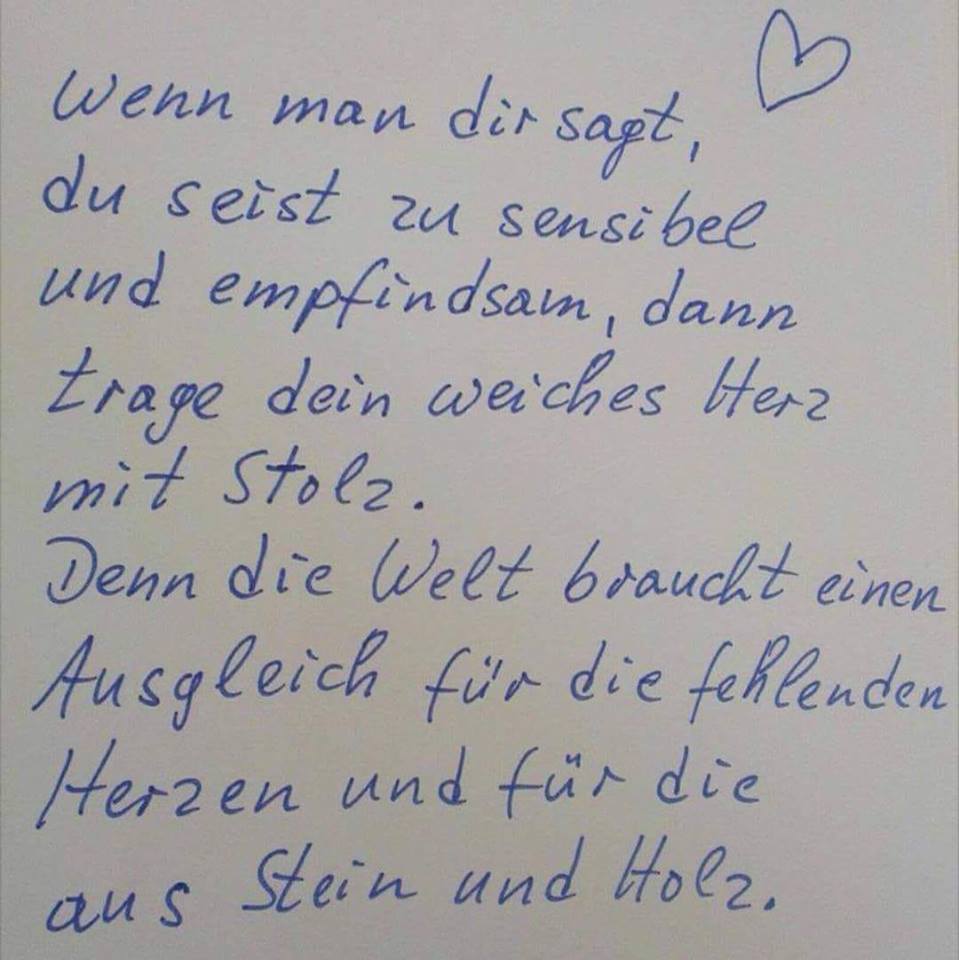 Wenn man dir sagt,
du seist zu sensibel
und empfindsam, dann
trage dein weiches Herz
mit Stolz.
Denn die Welt braucht einen
Ausgleich für die fehlenden
Herzen und für die
aus Stein und Holz.